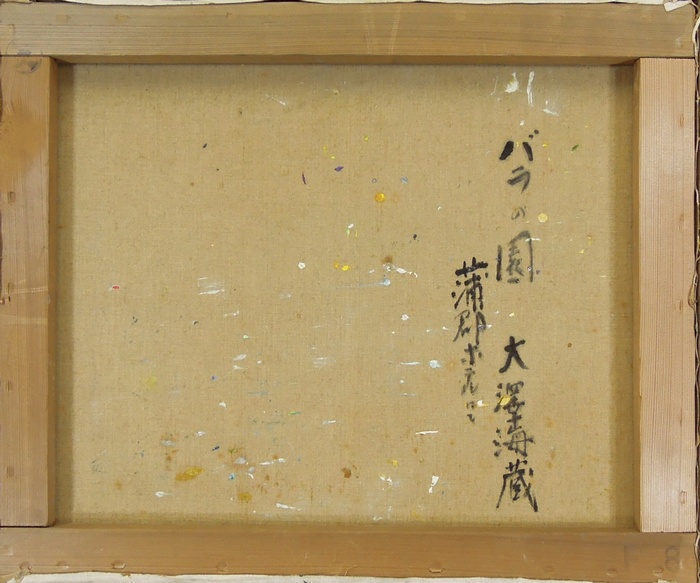 バラの園　大澤海蔵
蒲郡ホテルにて